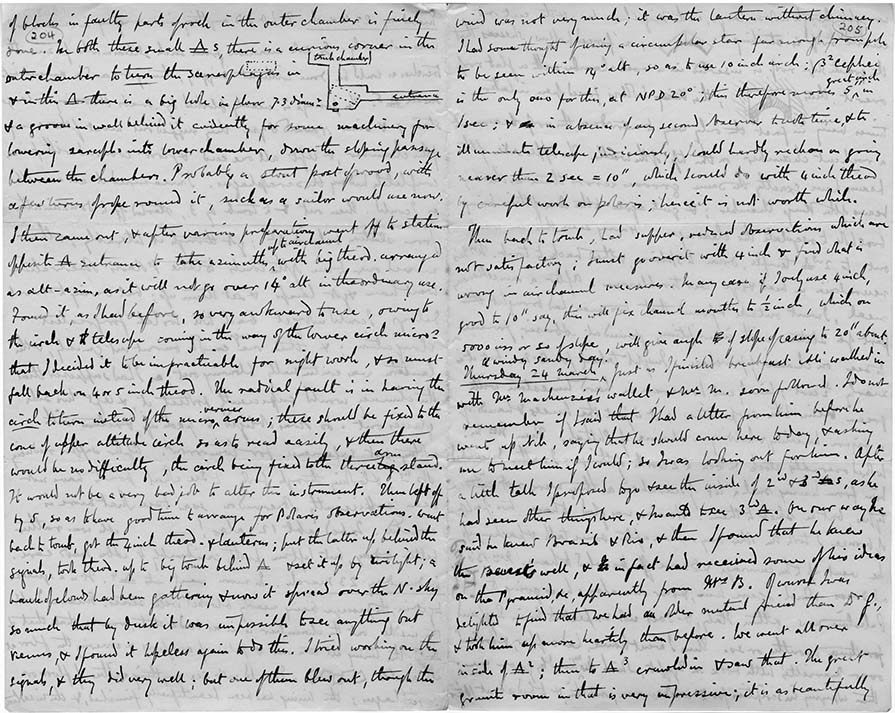 of blocks in faulty parts of rock in the outer chamber is finely
204
done. In both these small ∆s, there is a curious corner in the
outer chamber to turn the sarcophagus in
tomb chamber
& in this ∆ there is a big hole in floor 7·3 diam?
entrance
& a groove in wall behind it evidently for some machinery for
lowering sarcoph. into lower chamber, down the sloping passage
between the chambers. Probably a stout post of wood, with
a few turns of rope round it, such as a sailor would use now.
I then came out, & after various preparations went off to station
opposite ∆ entrance to take azimuths of air channel with big theod. arranged
as alt-azim, as it will not go over 14° alt in the ordinary use.
Found it, as I had before, so very awkward to use, owing to
the circle & telescope coming in the way of the lower circle micros
that I decided it to be impracticable for night work, & so must
fall back on 4 or 5 inch theod. The radical fault is in having the
circle to turn instead of the micro, vernier arms; these should be fixed to the
cone of upper altitude circle so as to read easily, & then there
would be no difficulty, the circle being fixed to the stand.
It would not be a very bad job to alter the instrument. Then left off
by 5, so as to have good time to arrange for Polaris observations. Went
back to tomb, got the 4 inch theod. & lanterns; put the latter up behind the
signals, took theod. up to big tomb behind ∆ & set it up by twilight; a
bank of clouds had been gathering & now it spread over the N. sky
so much that by dusk it was impossible to see anything but
Venus, & I found it hopeless again to do this. I tried working on the
signals, & they did very well; but one of them blew out, though the
wind was not very much; it was the lantern without chimney.
205
I had some thought of using a circumpolar star far enough from pole
to be seen within 14° alt, so as to use 10 inch circle; β Cephei
is the only one for this, at NPD 20°; this therefore moves 5" great circle in
1 sec; & in absence of any second observer to take time, & to
illuminate telescope judiciously, I could hardly reckon on going
nearer than 2 sec = 10", which I could do with 4 inch theod
by careful work on polaris; hence it is not worth while.
Then back to tomb, had supper, reduced observations which are
not satisfactory; I must go over it with 4 inch & find what is
wrong in air channel measures. In any case if I only use 4 inch,
good to 10" say, this will fix channel mouths to ½ inch, which on
5000 ins or so of slope, will give angle of slope of casing to 20" about.
Thursday 24 March, a windy sandy day. Just as I finished breakfast Ali walked in
with Mr Mackenzie's wallet & Mr M. soon followed. I do not
remember if I said that I had a letter from him before he
went up Nile, saying that he should come here to day, & asking
me to meet him if I would; so I was looking out for him. After
a little talk I proposed to go & see the inside of 2nd & 3rd ∆s, as he
had seen other things here, & I wanted to see 3rd ∆. On our way he
said he knew Brazil & Rio, & then I found that he knew
the well, & in fact had received some of his ideas
on the Pyramid &c, apparently from Mrs B. Of course I was
delighted to find that we had an older mutual friend than Dr G.,
& took him up more heartily than before. We went all over
inside of ∆2; then to ∆3 crawled in & saw that. The great
granite room in that is very impressive; it is as beautifully